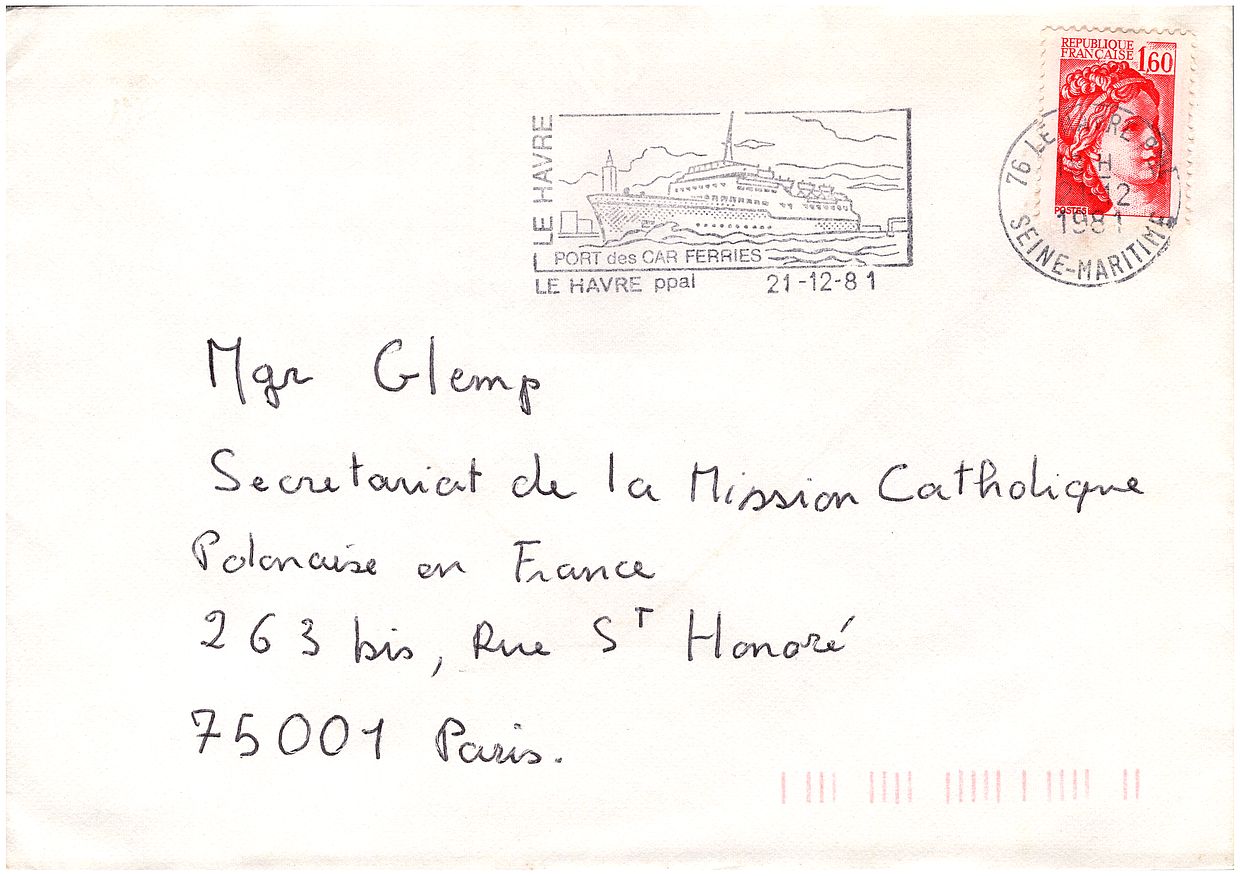 REPUBLIQUE
FRANÇAISE
1,60
POSTES
76 LE HAVRE
H
12
1981
SEINE-MARITIME
LE HAVRE
PORT des CAR FERRIES
LE HAVRE ppal 21-12-81
Mgr Glemp
Secretariat de la Mission Catholique
Polonaise en France
263 bis, Rue ST Honoré
75001 Paris.